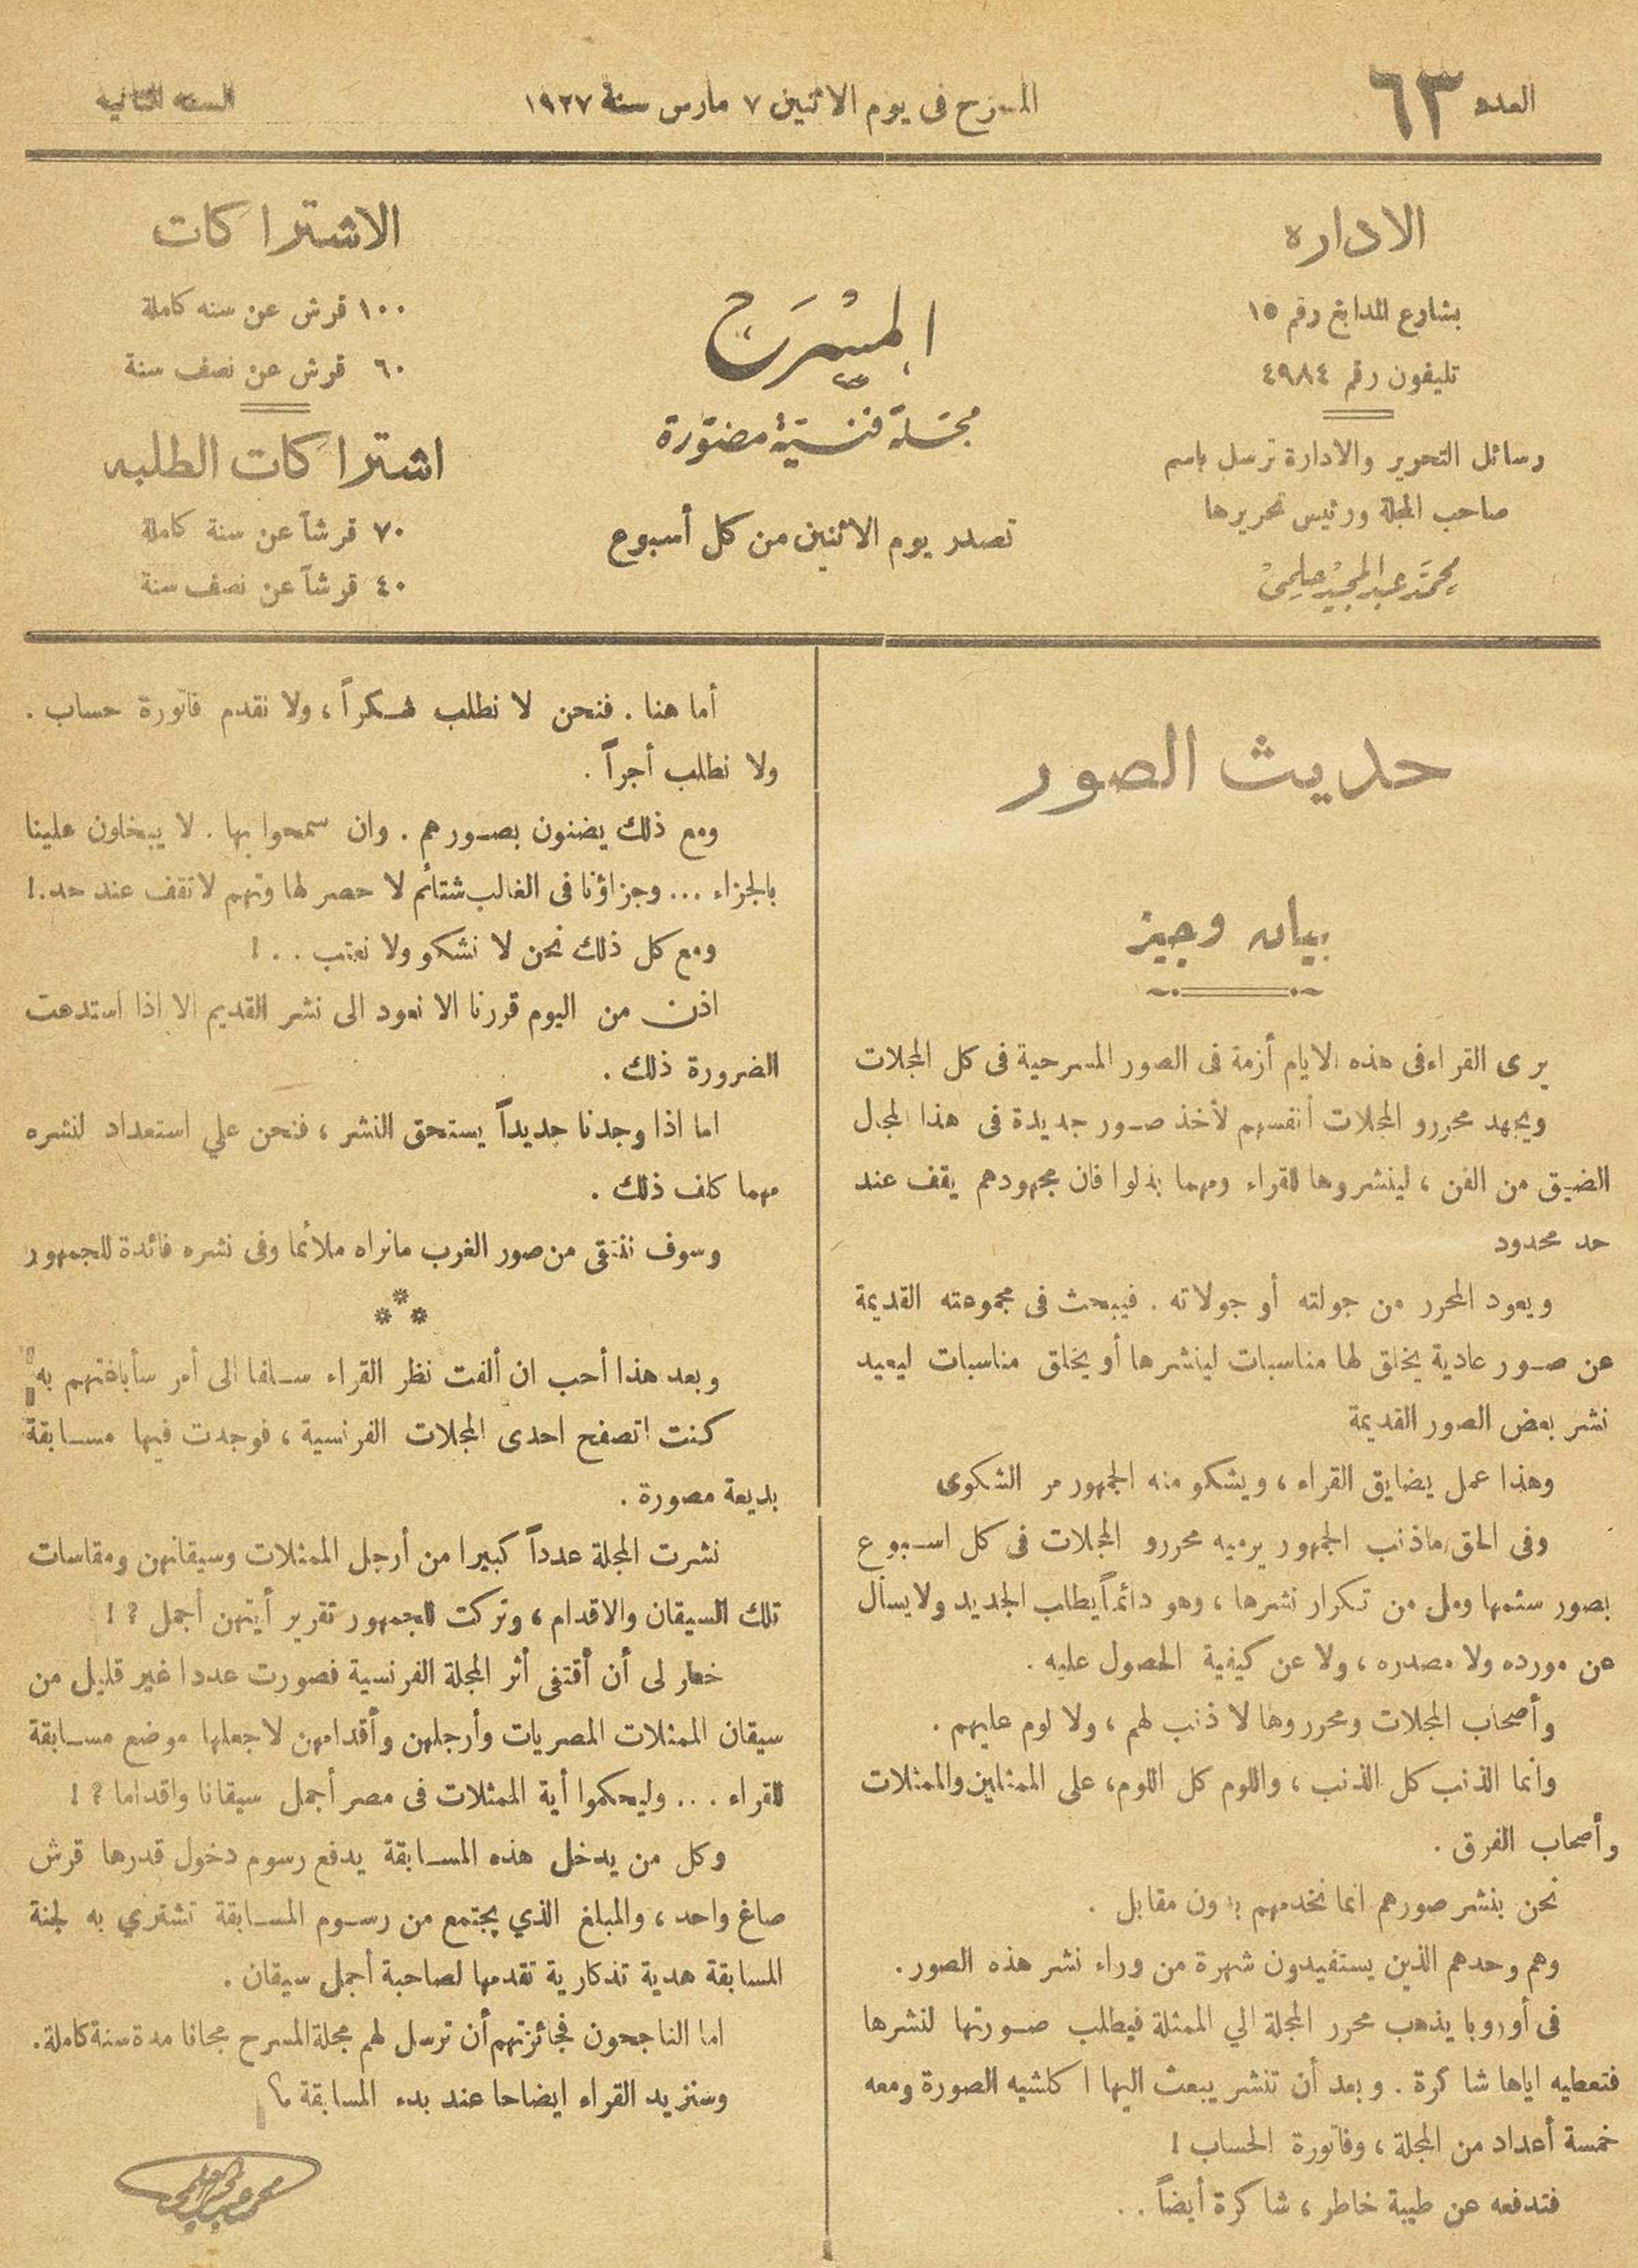 العدد ٦٣
المسرح فى يوم الاثنين ٧ مارس سنة ١٩٢٧
السنه الثانيه
الاداره
بشارع المدابغ رقم ١٥
تليفون رقم ٤٩٨٤
رسائل التحرير والادارة ترسل باسم
صاحب المجلة ورئيس تحريرها
محمَّد عبد المجيْد حلمىْ
المِسْرَح
مجَلة فنيّة مصَوّرة
تصدر يوم الاثنين من كل أسبوع
الاشتراكات
١٠٠ قرش عن سنه كاملة
٦٠ قرش عن نصف سنة
اشتراكات الطلبه
٧٠ قرشاً عن سنة كاملة
٤٠ قرشاً عن نصف سنة
حديث الصور
بيان وجيز
يرى القراء فى هذه الايام أزمة فى الصور المسرحية فى كل المجلات
ويجهد محررو المجلات أنفسهم لأخذ صور جديدة فى هذا المجال
الضيق من الفن ، لينشروها للقراء ومهما بذلوا فان مجهودهم يقف عند
حد محدود
ويعود المحرر من جولته أو جولاته . فيبحث فى مجموعته القديمة
عن صور عادية يخلق لها مناسبات لينشرها أو يخلق مناسبات ليعيد
نشر بعض الصور القديمة
وهذا عمل يضايق القراء ، ويشكو منه الجمهور مر الشكوى
وفى الحق ماذنب الجمهور يرميه محررو المجلات فى كل اسبوع
بصور سئمها ومل من تكرار نشرها ، وهو دائماً يطلب الجديد ولا يسأل
عن مورده ولا مصدره ، ولا عن كيفية الحصول عليه .
وأصحاب المجلات ومحرروها لا ذنب لهم ، ولا لوم عليهم .
وانما الذنب كل الذنب ، واللوم كل اللوم، على الممثلين والممثلات
وأصحاب الفرق .
نحن بنشر صورهم انما نخدمهم بدون مقابل .
وهم وحدهم الذين يستفيدون شهرة من وراء نشر هذه الصور .
فى أوروبا يذهب محرر المجلة الي الممثلة فيطلب صورتها لنشرها
فتعطيه اياها شاكرة . وبعد أن تنشر يبعث اليها اكلشيه الصورة ومعه
خمسة أعداد من المجلة ، وفاتورة الحساب !
فتدفعه عن طيبة خاطر ، شاكرة أيضاً . .
أما هنا . فنحن لا نطلب شكراً ، ولا نقدم فاتورة حساب .
ولا نطلب أجراً .
ومع ذلك يضنون بصورهم . وان سمحوا بها . لا يبخلون علينا
بالجزاء ... وجزاؤنا فى الغالب شتائم لا حصر لها وتهم لاتقف عند حد. !
ومع كل ذلك نحن لا نشكو ولا نعتب . . !
اذن من اليوم قررنا الا نعود الى نشر القديم الا اذا استدعت
الضرورة ذلك .
اما اذا وجدنا جديداً يستحق النشر ، فنحن علي استعداد لنشره
مهما كلف ذلك .
وسوف ننتقى من صور الغرب مانراه ملائما وفى نشره فائدة للجمهور
***
وبعد هذا أحب ان ألفت نظر القراء سلفا الى أمر سأباغتهم به
كنت اتصفح احدى المجلات الفرنسية ، فوجدت فيها مسابقة
بديعة مصورة .
نشرت المجلة عدداً كبيرا من أرجل الممثلات وسيقانهن ومقاسات
تلك السيقان والاقدام ، وتركت للجمهور تقرير أيتهن أجمل ? !
خطر لى أن أقتفى أثر المجلة الفرنسية فصورت عددا غير قليل من
سيقان الممثلات المصريات وأرجلهن وأقدامهن لاجعلها موضع مسابقة
للقراء . .. وليحكموا أية الممثلات فى مصر أجمل سيقانا واقداما ? !
وكل من يدخل هذه المسابقة يدفع رسوم دخول قدرها قرش
صاغ واحد ، والمبلغ الذي يجتمع من رسوم المسابقة تشتري به لجنة
المسابقة هدية تذكارية تقدمها لصاحبة أجمل سيقان .
اما الناجحون فجائزتهم أن ترسل لهم مجلة المسرح مجانا مدة سنة كاملة.
وسنزيد القراء ايضاحا عند بدء المسابقة ؟
محمد عبد المجيد حلمى